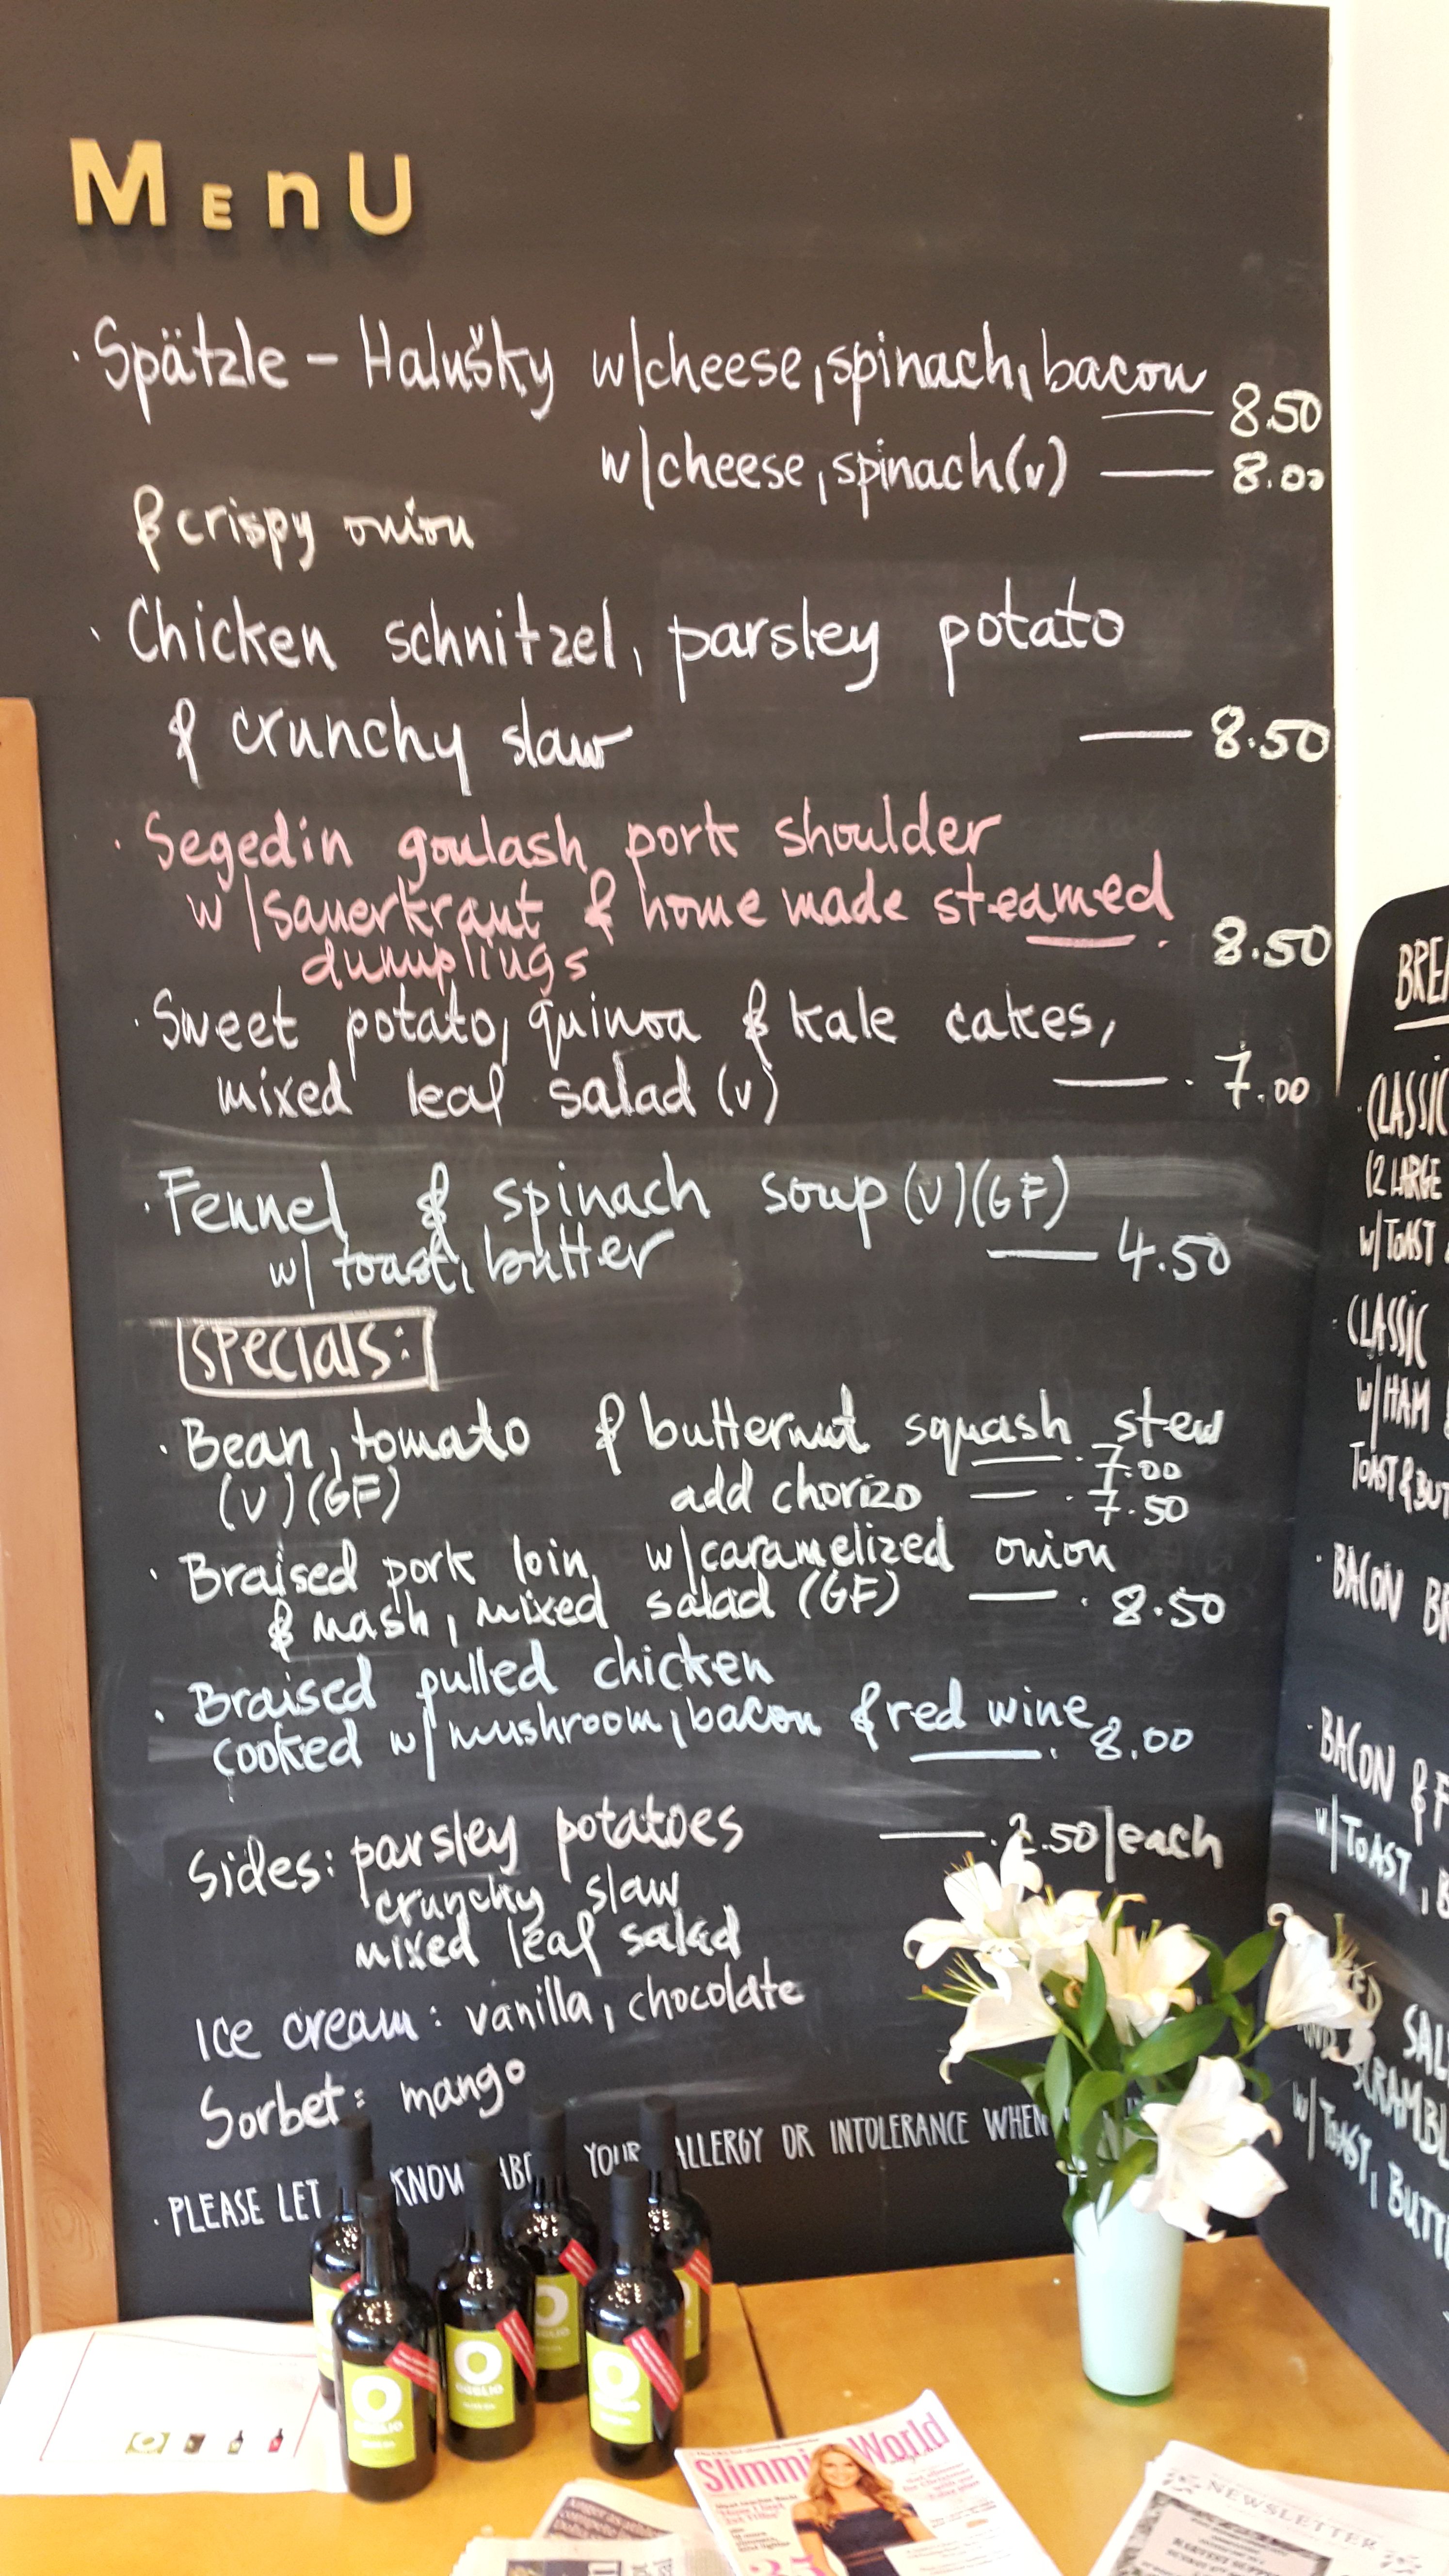 MEnU
· Spätzle – Halušky w/cheese, spinach, bacon
8.50
w/cheese, spinach (v) — 8.00
& crispy onion
· Chicken schnitzel, parsley potato
& crunchy slaw — 8.50
· Segedin goulash pork shoulder
w/sauerkraut & home made steamed
dumplings — . 8.50
· Sweet potato, quinoa & kale cakes,
mixed leaf salad (v) — . 7.00
· Fennel & spinach soup (V)(GF)
w/ toast, butter — 4.50
SPECIALS:
· Bean, tomato & butternut squash stew
— . 7.00
(V)(GF) add chorizo — . 7.50
· Braised pork loin w/caramelized onion
& mash, mixed salad (GF) — . 8.50
· Braised pulled chicken
cooked w/ mushroom, bacon & red wine
— . 8.00
Sides: parsley potatoes — . 2.50/each
crunchy slaw
mixed leaf salad
Ice cream: vanilla, chocolate
Sorbet: mango
· PLEASE LET KNOW YOUR ALLERGY OR INTOLERANCE WHEN
· CLASSIC
(2 LARGE
w/TOAST
· CLASSIC
w/HAM
TOAST &
· BACON
· BACON &
w/TOAST,
w/TOAST,
Slimming World
NEWSLETTER